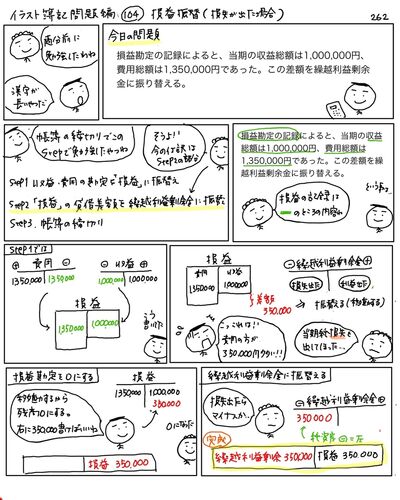 イラスト簿記問題編 104 損益振替(損失が出た場合) 262
両方前に
勉強したわね
漢字が
長いやつだ
今日の問題
損益勘定の記録によると、当期の収益総額は1,000,000円、
費用総額は1,350,000円であった。この差額を繰越利益剰余
金に振り替える。
帳簿の締切りでこの
Stepで勉強したやつね
そうよ!!
今の仕訳は
Step2の部分
Step1 収益・費用の勘定を「損益」に振替え
Step2 「損益」の貸借差額を繰越利益剰余金に振替
Step3. 帳簿の締切り
損益勘定の記録によると、当期の収益
総額は1,000,000円、費用総額は
1,350,000円であった。この差額を繰越
利益剰余金に振り替える。
損益の記録は
のところの内容ね
Step1では
⊕ 費用 ⊖
⊖ 収益 ⊕
1350,000 1350,000
1,000,000 1,000,000
損益
1350,000 1,000,000
こう
書いてた
損益
費用 収益
1350,000 1,000,000
差額
350,000
⊖繰越利益剰余金⊕
損失出た 利益出た
⇒ 振替える(移動する)
これは!!
費用の方が
350,000円多い!!
当期純損失を
出してしまった...
損益勘定を0にする
移動するから
残高0にする。
右に350,000書けばいいね
損益
1350,000 1,000,000
350,000
0になった
損益 350,000
繰越利益剰余金に振替える
損失出たら
マイナスか...
⊖繰越利益剰余金⊕
350,000
純資産⊖=左
完成
繰越利益剰余金 350,000 損益 350,000